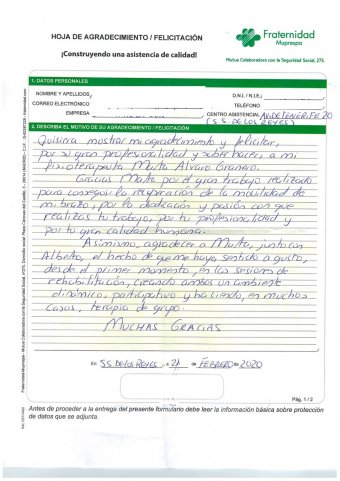 HOJA DE AGRADECIMIENTO / FELICITACIÓN
¡Construyendo una asistencia de calidad!
Fraternidad
Muprespa
Mutua Colaboradora con la Seguridad Social, 275.
1. DATOS PERSONALES
NOMBRE Y APELLIDOS
D.N.I. / N.I.E.
CORREO ELECTRÓNICO
TELÉFONO
EMPRESA
CENTRO ASISTENCIAL AV. DE TENERIFE 20
(S.S. DE LOS REYES)
2. DESCRIBA EL MOTIVO DE SU AGRADECIMIENTO / FELICITACIÓN
Quisiera mostrar mi agradecimiento y felicitar,
por su gran profesionalidad y saber hacer, a mi
fisioterapeuta Maita Alvaro Granero.
Gracias Maita por el gran trabajo realizado
para conseguir la recuperación de la movilidad de
mi brazo, por la dedicación y pasión con que
realizas tu trabajo, por tu profesionalidad y
por tu gran calidad humana.
Asimismo, agradecer a Maita, junto con
Alberto, el hecho de que me haya sentido a gusto,
desde el primer momento, en las sesiones de
rehabilitación, creando ambos un ambiente
dinámico, participativo y haciendo, en muchos
casos, terapia de grupo.
MUCHAS GRACIAS
En S.S. DE LOS REYES, a 21 de FEBRERO de 2020
Pág. 1 / 2
Antes de proceder a la entrega del presente formulario debe leer la información básica sobre protección
de datos que se adjunta.